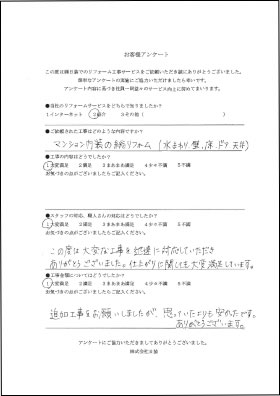 お客様アンケート
この度は弊社でのリフォーム工事サービスをご依頼いただき誠にありがとうございました。
簡単なアンケートの実施にご協力いただけましたら幸いです。
アンケート内容に基づき社員一同益々のサービス向上に努めてまいります。
●当社のリフォームサービスをどちらで知りましたか?
1インターネット 2紹介 3その他(   )
●ご依頼された工事はどのような内容ですか?
マンション内装の総リフォーム (水まわり、壁、床、ドア、天井)
●工事の内容はどうでしたか?
1大変満足 2満足 3まあまあ満足 4少々不満 5不満
お気づきの点がございましたらご記入ください。
●スタッフの対応、職人さんの対応はどうでしたか?
1大変満足 2満足 3まあまあ満足 4少々不満 5不満
お気づきの点がございましたらご記入ください。
この度は大変な工事を迅速に対応していただき
ありがとうございました。仕上がりに関しても大変満足しています。
●工事金額についてはどうでしたか?
1大変満足 2満足 3まあまあ満足 4少々不満 5不満
お気づきの点がございましたらご記入ください。
追加工事をお願いしましたが、思っていたよりも安かったです。
ありがとうございます。
アンケートにご協力いただきましてありがとうございました。